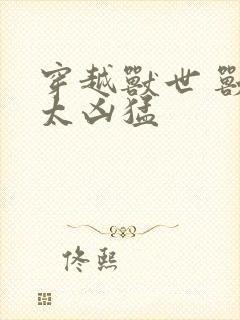 穿越獸世 獸
太凶猛
佟熙